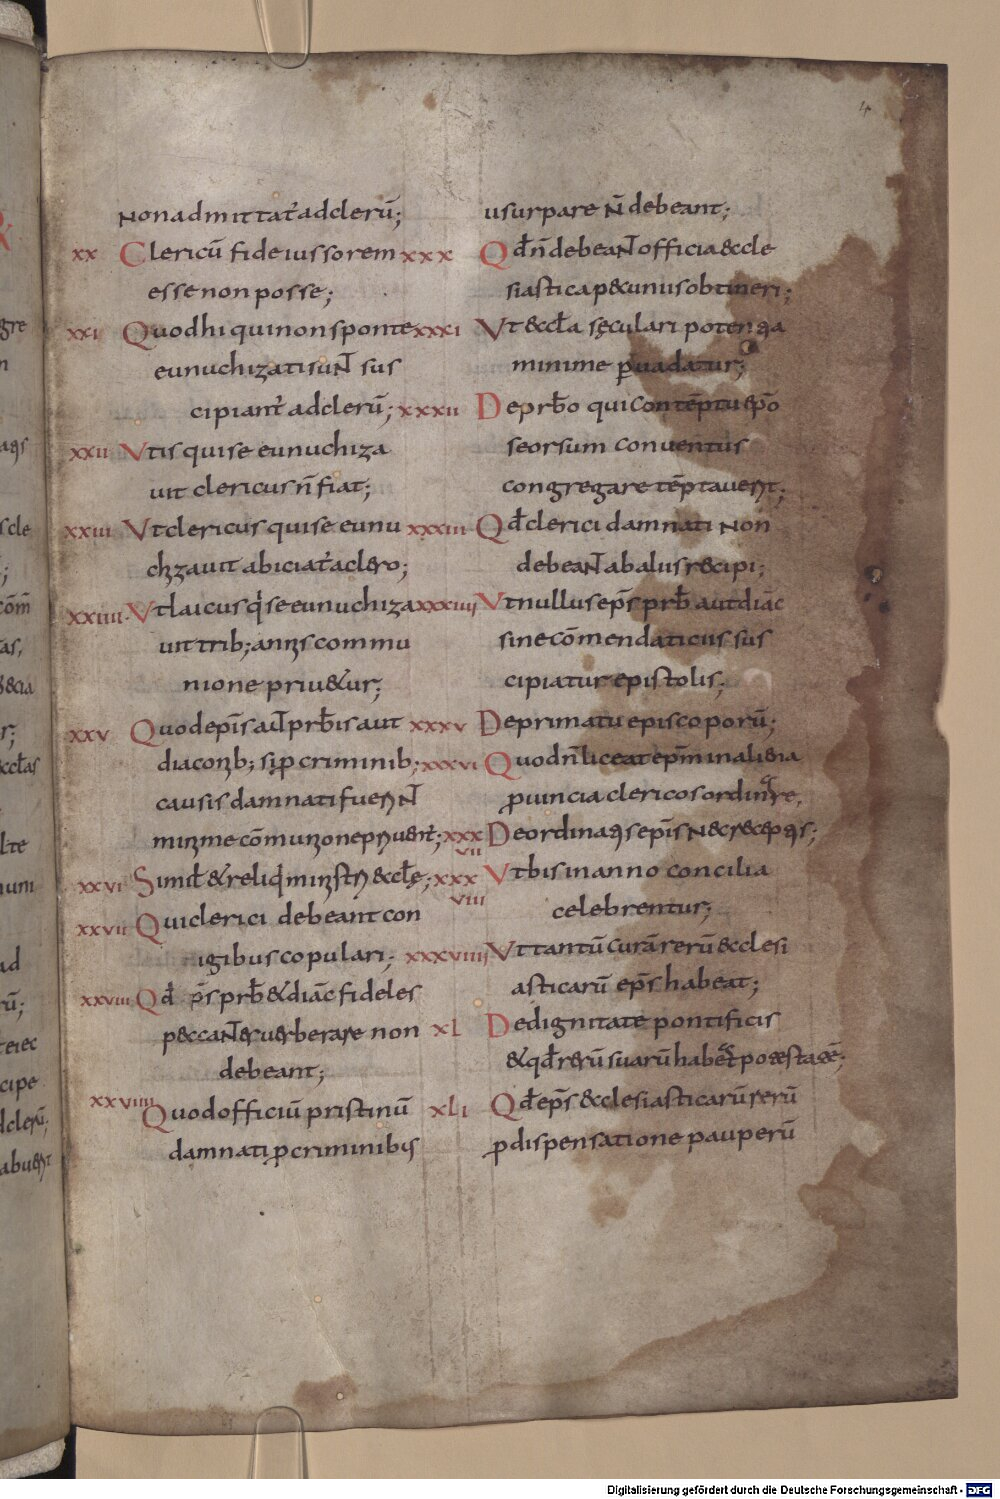 4
non admittat᷑ ad clerū;
xx Clericū fideiussorem
esse non posse;
xxi Quod hi qui non sponte
eunuchizati sunt sus
cipiant᷑ ad clerū;
xxii Ut is qui se eunuchiza
uit clericus n̄ fiat;
xxiii Ut clericus qui se eunu
chizauit abiciat᷑ a clero;
xxiiii Ut laicus q̍ se eunuchiza
uit trib; annis commu
nione priu&ur;
xxv Quod ep̄is aut prb̄is aut
diaconib; si ꝑ criminib;
causis damnati fuerint
minime cōmunione priuent᷑;
xxvi Simil̄ & reliq̍ ministri &ccl̄ę;
xxvii Qui clerici debeant con
igibus copulari;
xxviii Qd̄ ep̄s prb̄ & diāc fideles
peccantes uerberare non
debeant;
xxviiii Quod officiū pristinū
damnati ꝑ criminibus
usurpare n̄ debeant;
xxx Qd̄ n̄ debeant officia &ccle
siastica p& unus obtineri;
xxxi Ut &ccl̄a sęculari potentia
minime ꝑuadatur;
xxxii De prb̄o qui contēptu ep̄o
seorsum conuentus
congregare tēptauerit;
xxxiii Qd̄ clerici damnati non
debeant ab aliis r&cipi;
xxxiiii Ut nullus ep̄s prb̄ aut diāc
sine cōmendaticiis sus
cipiatur epistolis;
xxxv De primatu episcoporū;
xxxvi Quod n̄ liceat ep̄m in aliena
ꝓuincia clericos ordinare,
xxxvii De ordinatis ep̄is nec receptis;
xxxviii Ut bis in anno concilia
celebrentur;
xxxviiii Ut tantū curā rerū &cclesi
asticarū ep̄s habeat;
xl De dignitate pontificis
& qd̄ rerū suarū habet potestatē;
xli Qd̄ ep̄s &cclesiasticarū rerū
ꝓ dispensatione pauperū
Digitalisierung gefördert durch die Deutsche Forschungsgemeinschaft - DFG